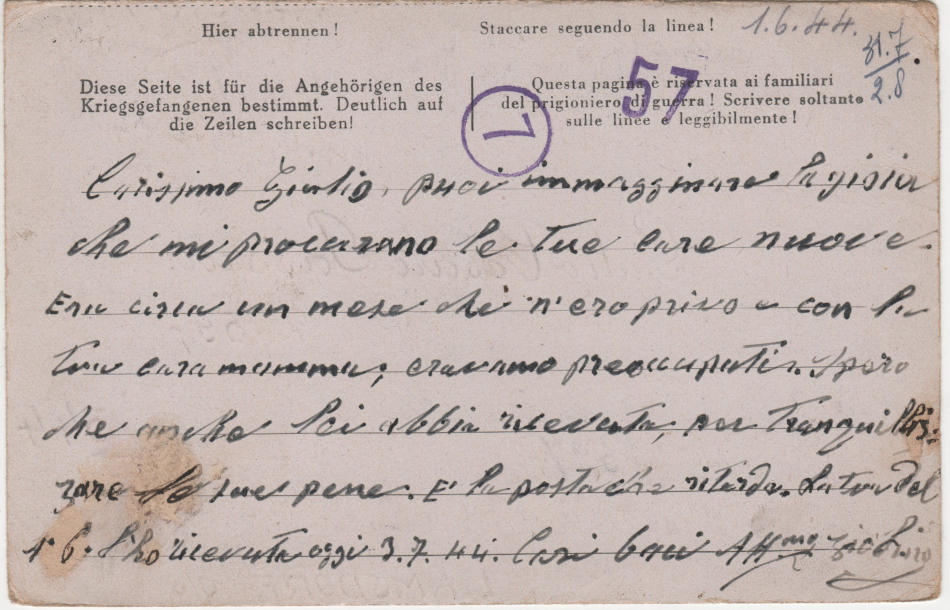 Hier abtrennen!
Staccare seguendo la linea!
1.6.44.
31.7
2.8
Diese Seite ist für die Angehörigen des
Kriegsgefangenen bestimmt. Deutlich auf
die Zeilen schreiben!
Questa pagina è riservata ai familiari
del prigioniero di guerra! Scrivere soltanto
sulle linee e leggibilmente!
57
7
Carissimo Giulio, puoi immaginare la gioia
che mi procurano le tue care nuove.
Era circa un mese che n'ero privo e con la
tua cara mamma; eravamo preoccupati. Spero
che anche lei abbia ricevuta, per tranquilliz=
zare le sue pene. E' la posta che ritarda. La tua del
1° 6. l'ho ricevuta oggi 3.7.44. Cari baci Aff.mo zio